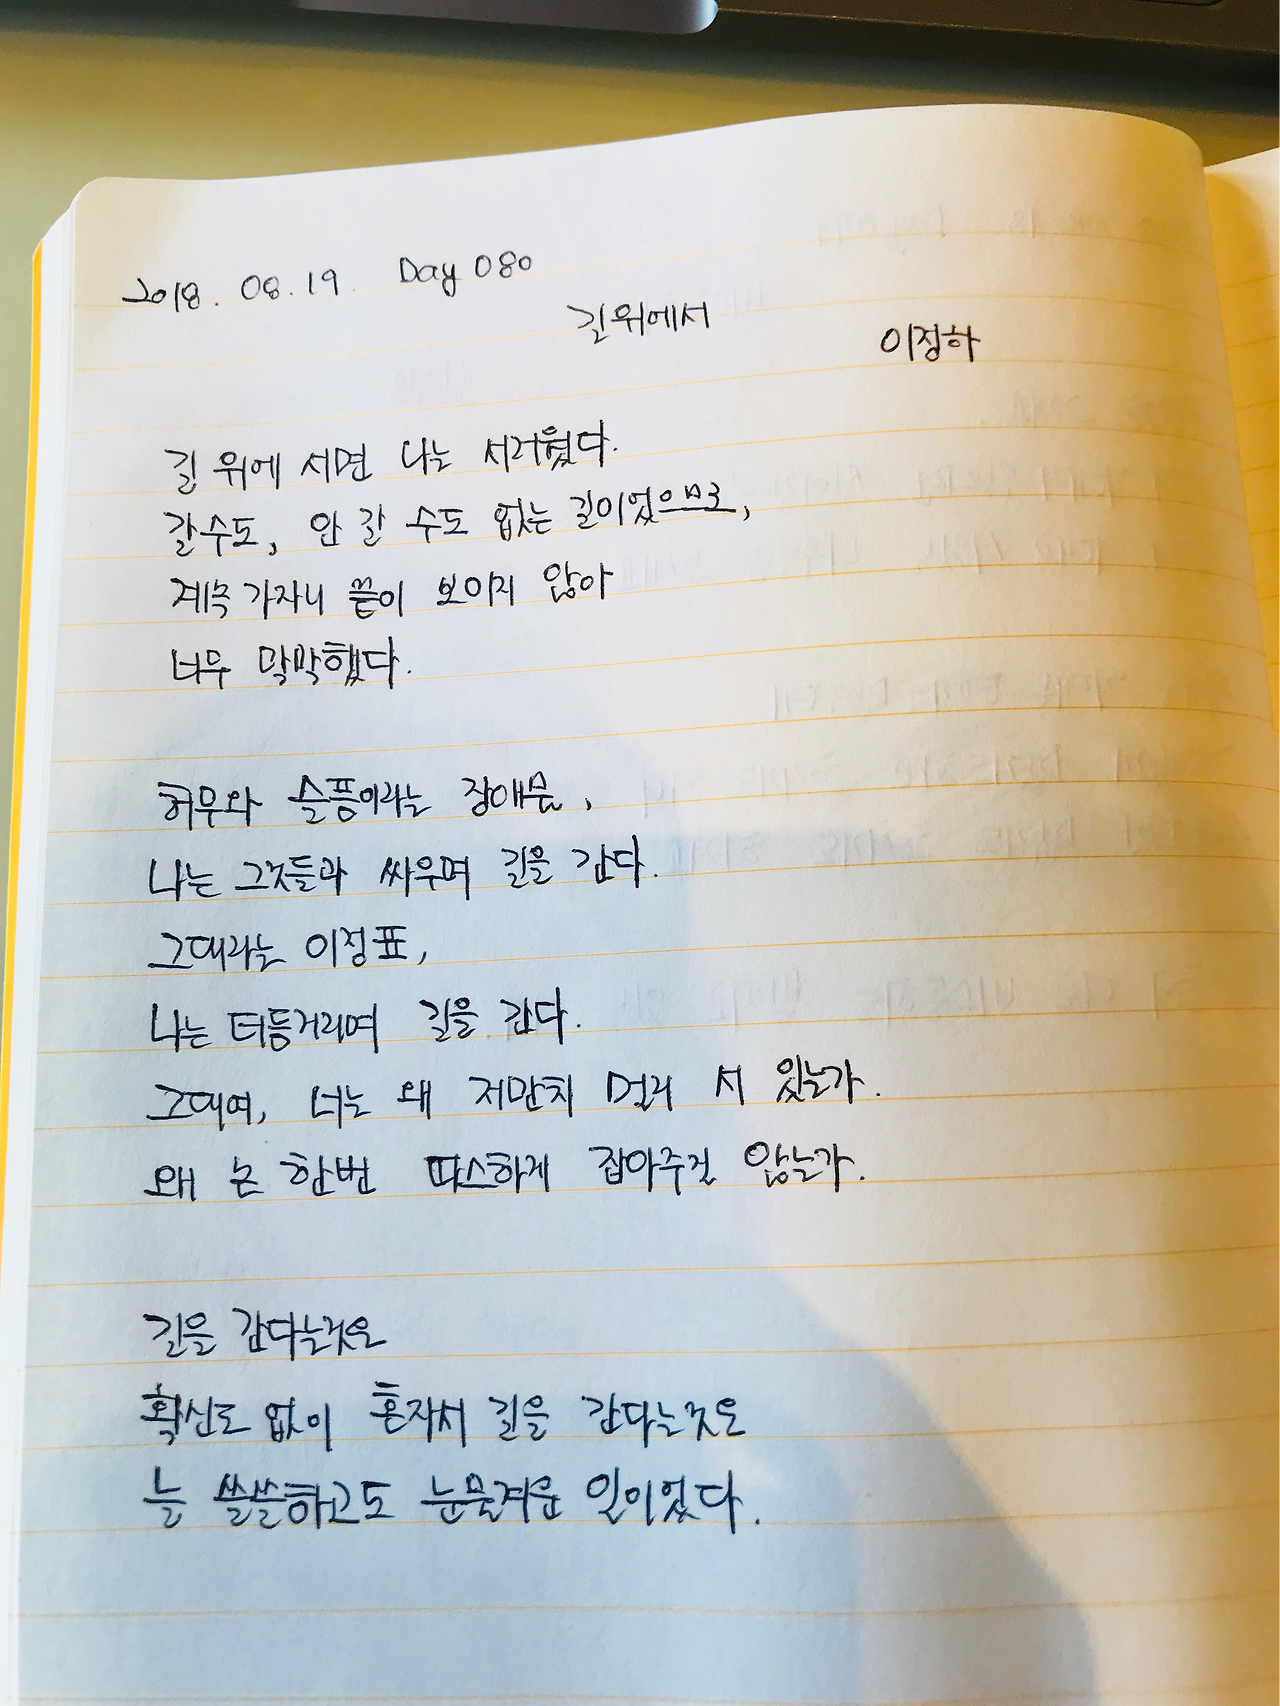 2018. 08. 19. Day 080
길위에서
이정하
길 위에 서면 나는 서러웠다.
갈수도, 안 갈 수도 없는 길이었으므로,
계속 가자니 끝이 보이지 않아
너무 막막했다.
허무와 슬픔이라는 장애물,
나는 그것들과 싸우며 길을 간다.
그대라는 이정표,
나는 더듬거리며 길을 간다.
그대여, 너는 왜 저만치 멀리 서 있는가.
왜 손 한번 따스하게 잡아주질 않는가.
길을 간다는것은
확신도 없이 혼자서 길을 간다는것은
늘 쓸쓸하고도 눈물겨운 일이었다.